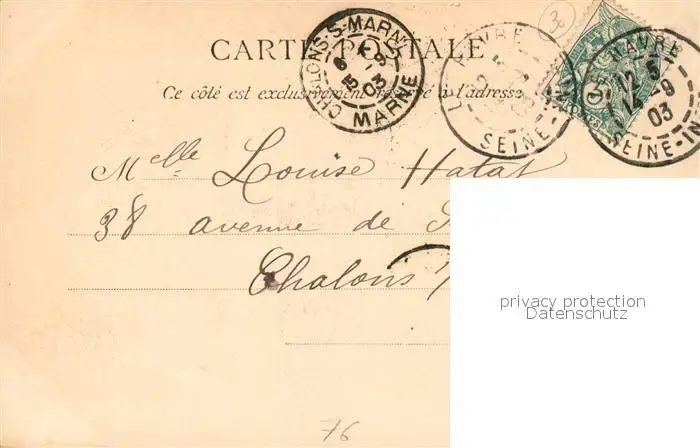 30
CARTE POSTALE
Ce côté est exclusivement réservé à l'adresse
CHALONS-S-MARNE
8
15 -9
03
MARNE
LE HAVRE
12 5
SEINE-
LE HAVRE
12 5
14 -9
03
SEINE-IN
Melle Louise Hatat
38 avenue de
Chalons
privacy protection
Datenschutz
76